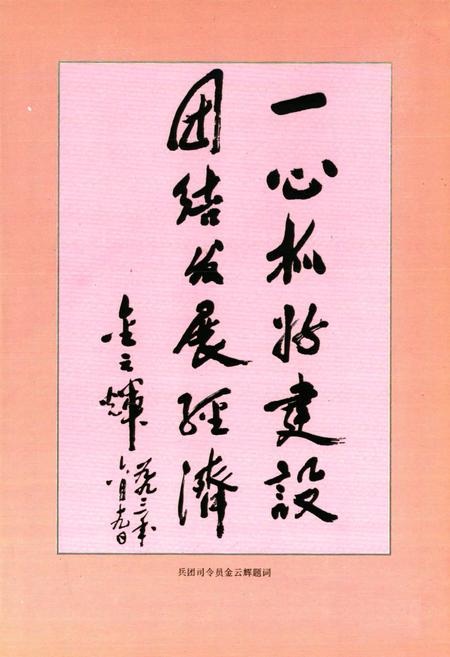 一心抓好建設
团结发展經濟
金云輝
一九九三年
六月十九日
兵团司令员金云辉题词